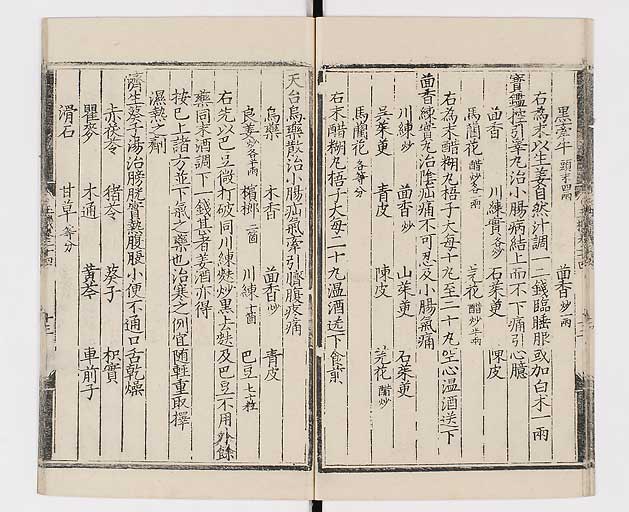 黑牽牛 頭末四兩 茴香 炒一兩
右為末以生姜自然汁調一二錢臨睡服或加白木一兩
寶鑑控引睾丸治小腸病結上而不下痛引心臆
茴香 川練實 各炒 石茱萸 陳皮
馬蘭花 醋炒各一兩 芫花 醋炒五兩
右為末醋糊丸梧子大每十丸至二十丸空心温酒送下
茴香練實丸治陰疝痛不可忍及小腸氣痛
川練 炒 茴香 炒 山茱萸 石茱萸
吳茱萸 青皮 陳皮 芫花 醋炒
馬蘭花 各等分
右末醋糊丸梧子大每二十丸温酒送下食前
天台烏藥散治小腸疝氣牽引臍腹疼痛
烏藥 木香 茴香 炒 青皮
良姜 炒各五兩 檳榔 二箇 川練 十箇 巴豆 七十粒
右先以巴豆微打破同川練麩炒黑去麩及巴豆不用外餘
藥同末酒調下一錢甚者姜酒亦得
按已上諸方並下氣之藥也治寒之例宜随輕重取擇
濕熱之劑
濟生葵子湯治膀胱實熱腹脹小便不通口舌乾燥
赤茯苓 猪苓 葵子 枳實
瞿麥 木通 黄芩 車前子
滑石 甘草 各等分